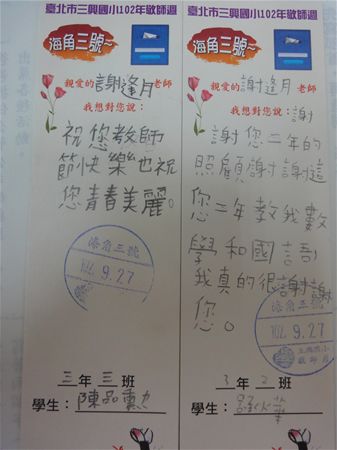 臺北市三興國小102年敬師週
海角三號~
親愛的謝逢月老師
我想對您說:
祝您教師
節快樂也祝
您青春美麗。
海角三號
102. 9.27
三年三班
學生:陳品勳
臺北市三興國小102年敬師週
海角三號~
親愛的謝逢月老師
我想對您說:謝
謝您二年的
照顧謝謝這
您二年教我數
學和國語
我真的很謝謝
您。
海角三號
102. 9.27
3年2班
學生: